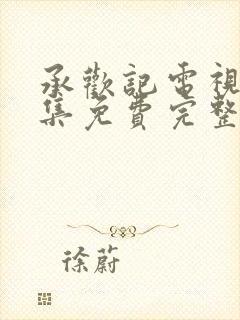 承歡記電視
集免費完整
徐蔚